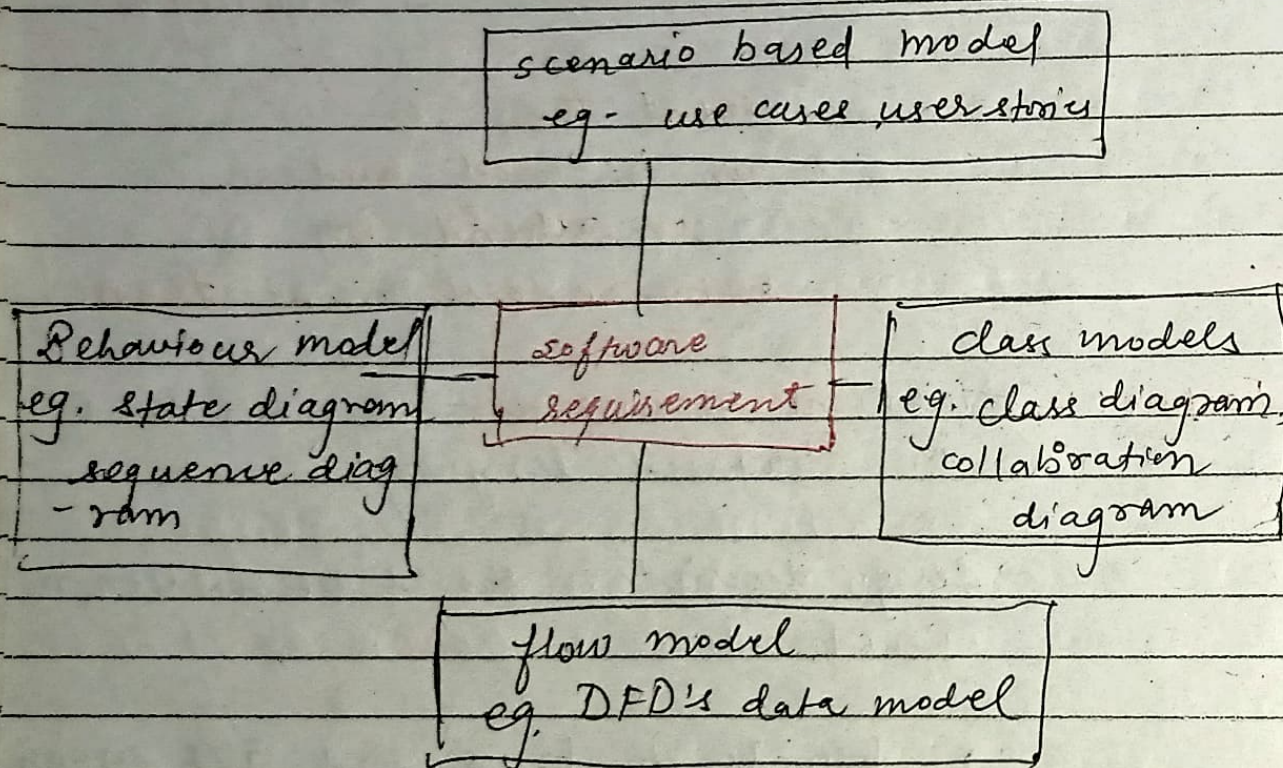 scenario based model
eg- use cases, user stories
Behaviour model
eg. state diagram
sequence diag
- ram
software
requirement
class models
eg. class diagram
collaboration
diagram
flow model
eg. DFD's data model